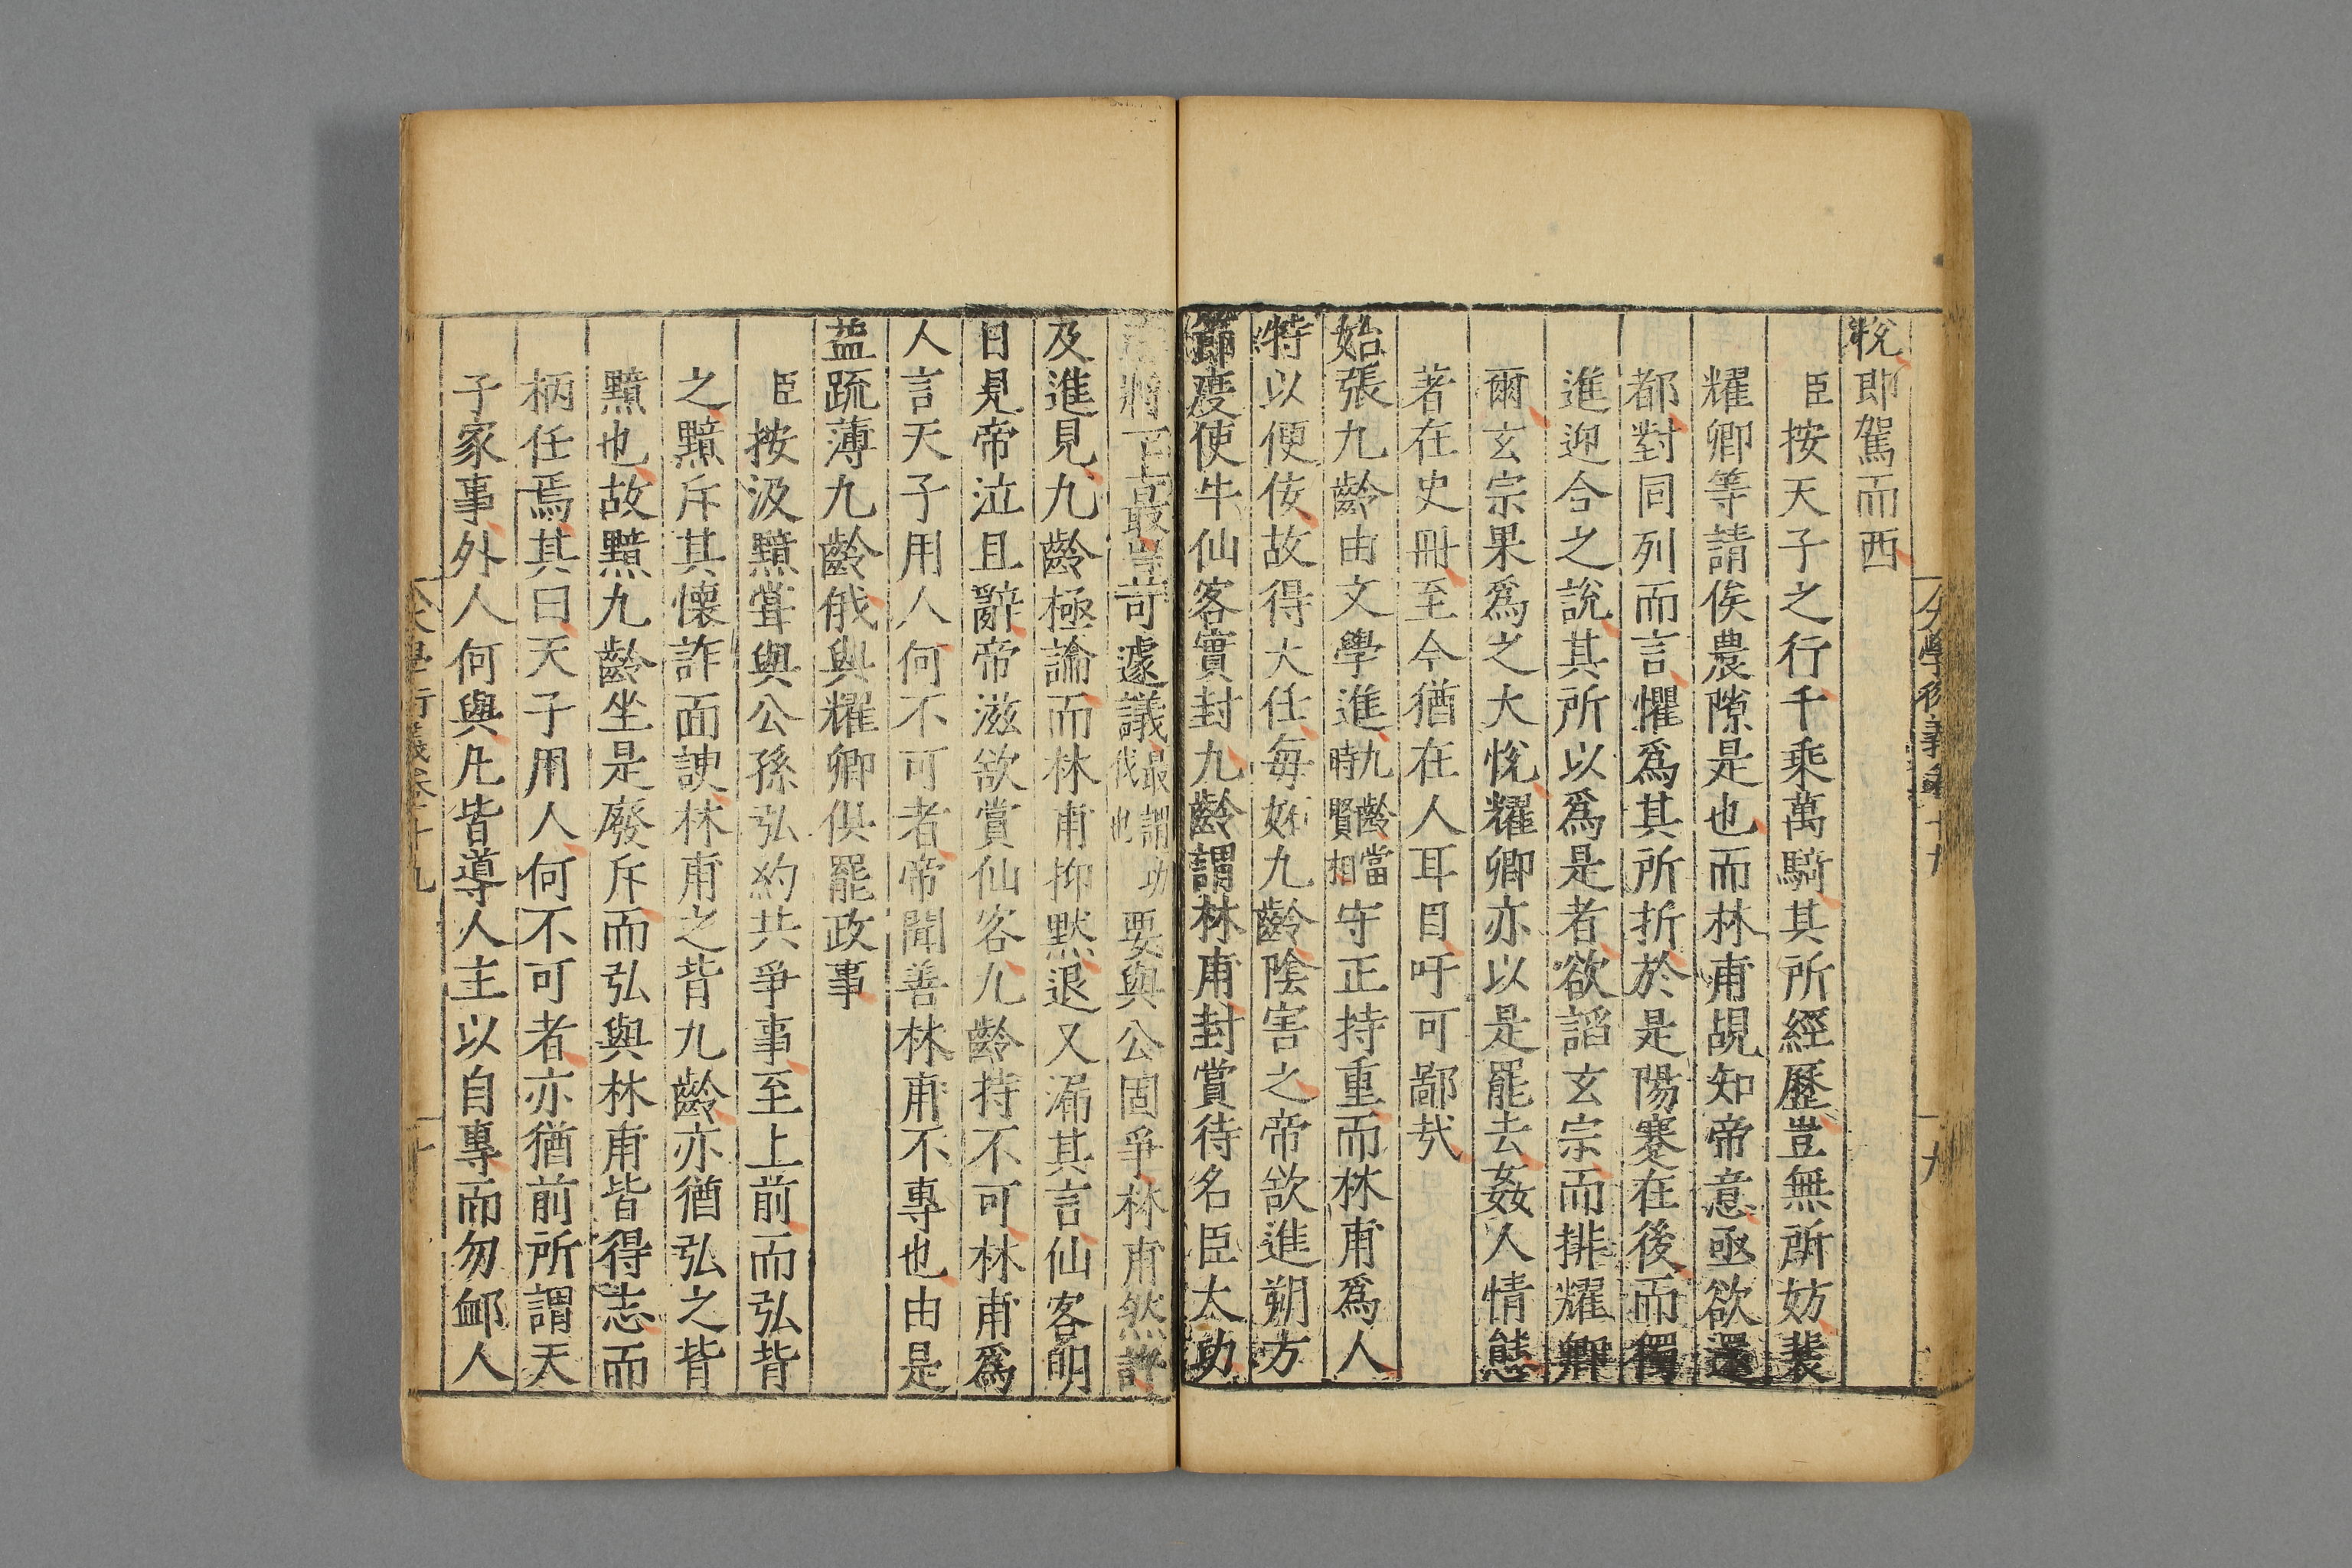 悅即駕而西
臣按天子之行千乘萬騎其所經歷豈無所妨裴
耀卿等請俟農隙是也而林甫覘知帝意亟欲還
都對同列而言懼爲其所折於是陽蹇在後而獨
進迎合之說其所以爲是者欲謟玄宗而排耀卿
爾玄宗果爲之大悅耀卿亦以是罷去姦人情態
著在史冊至今猶在人耳目吁可鄙㢤
始張九齡由文學進九齡當時賢相守正持重而林甫爲人
特以便佞故得大任每妬九齡陰害之帝欲進朔方
節度使牛仙客實封九齡謂林甫封賞待名臣太功
將一上最豈可遽議最謂功伐也要與公固爭林甫然許
及進見九齡極論而林甫抑默退又漏其言仙客明
日見帝泣且辭帝滋欲賞仙客九齡持不可林甫爲
人言天子用人何不可者帝聞善林甫不專也由是
益疏薄九齡俄與耀卿俱罷政事
臣按汲黯甞與公孫弘約共爭事至上前而弘背
之黯斥其懷詐面諛林甫之背九齡亦猶弘之背
黯也故黯九齡坐是廢斥而弘與林甫皆得志而
柄任焉其曰天子用人何不可者亦猶前所謂天
子家事外人何與凡皆導人主以自專而勿卹人
大學衍義卷十九
十
大學衍義卷十九
九